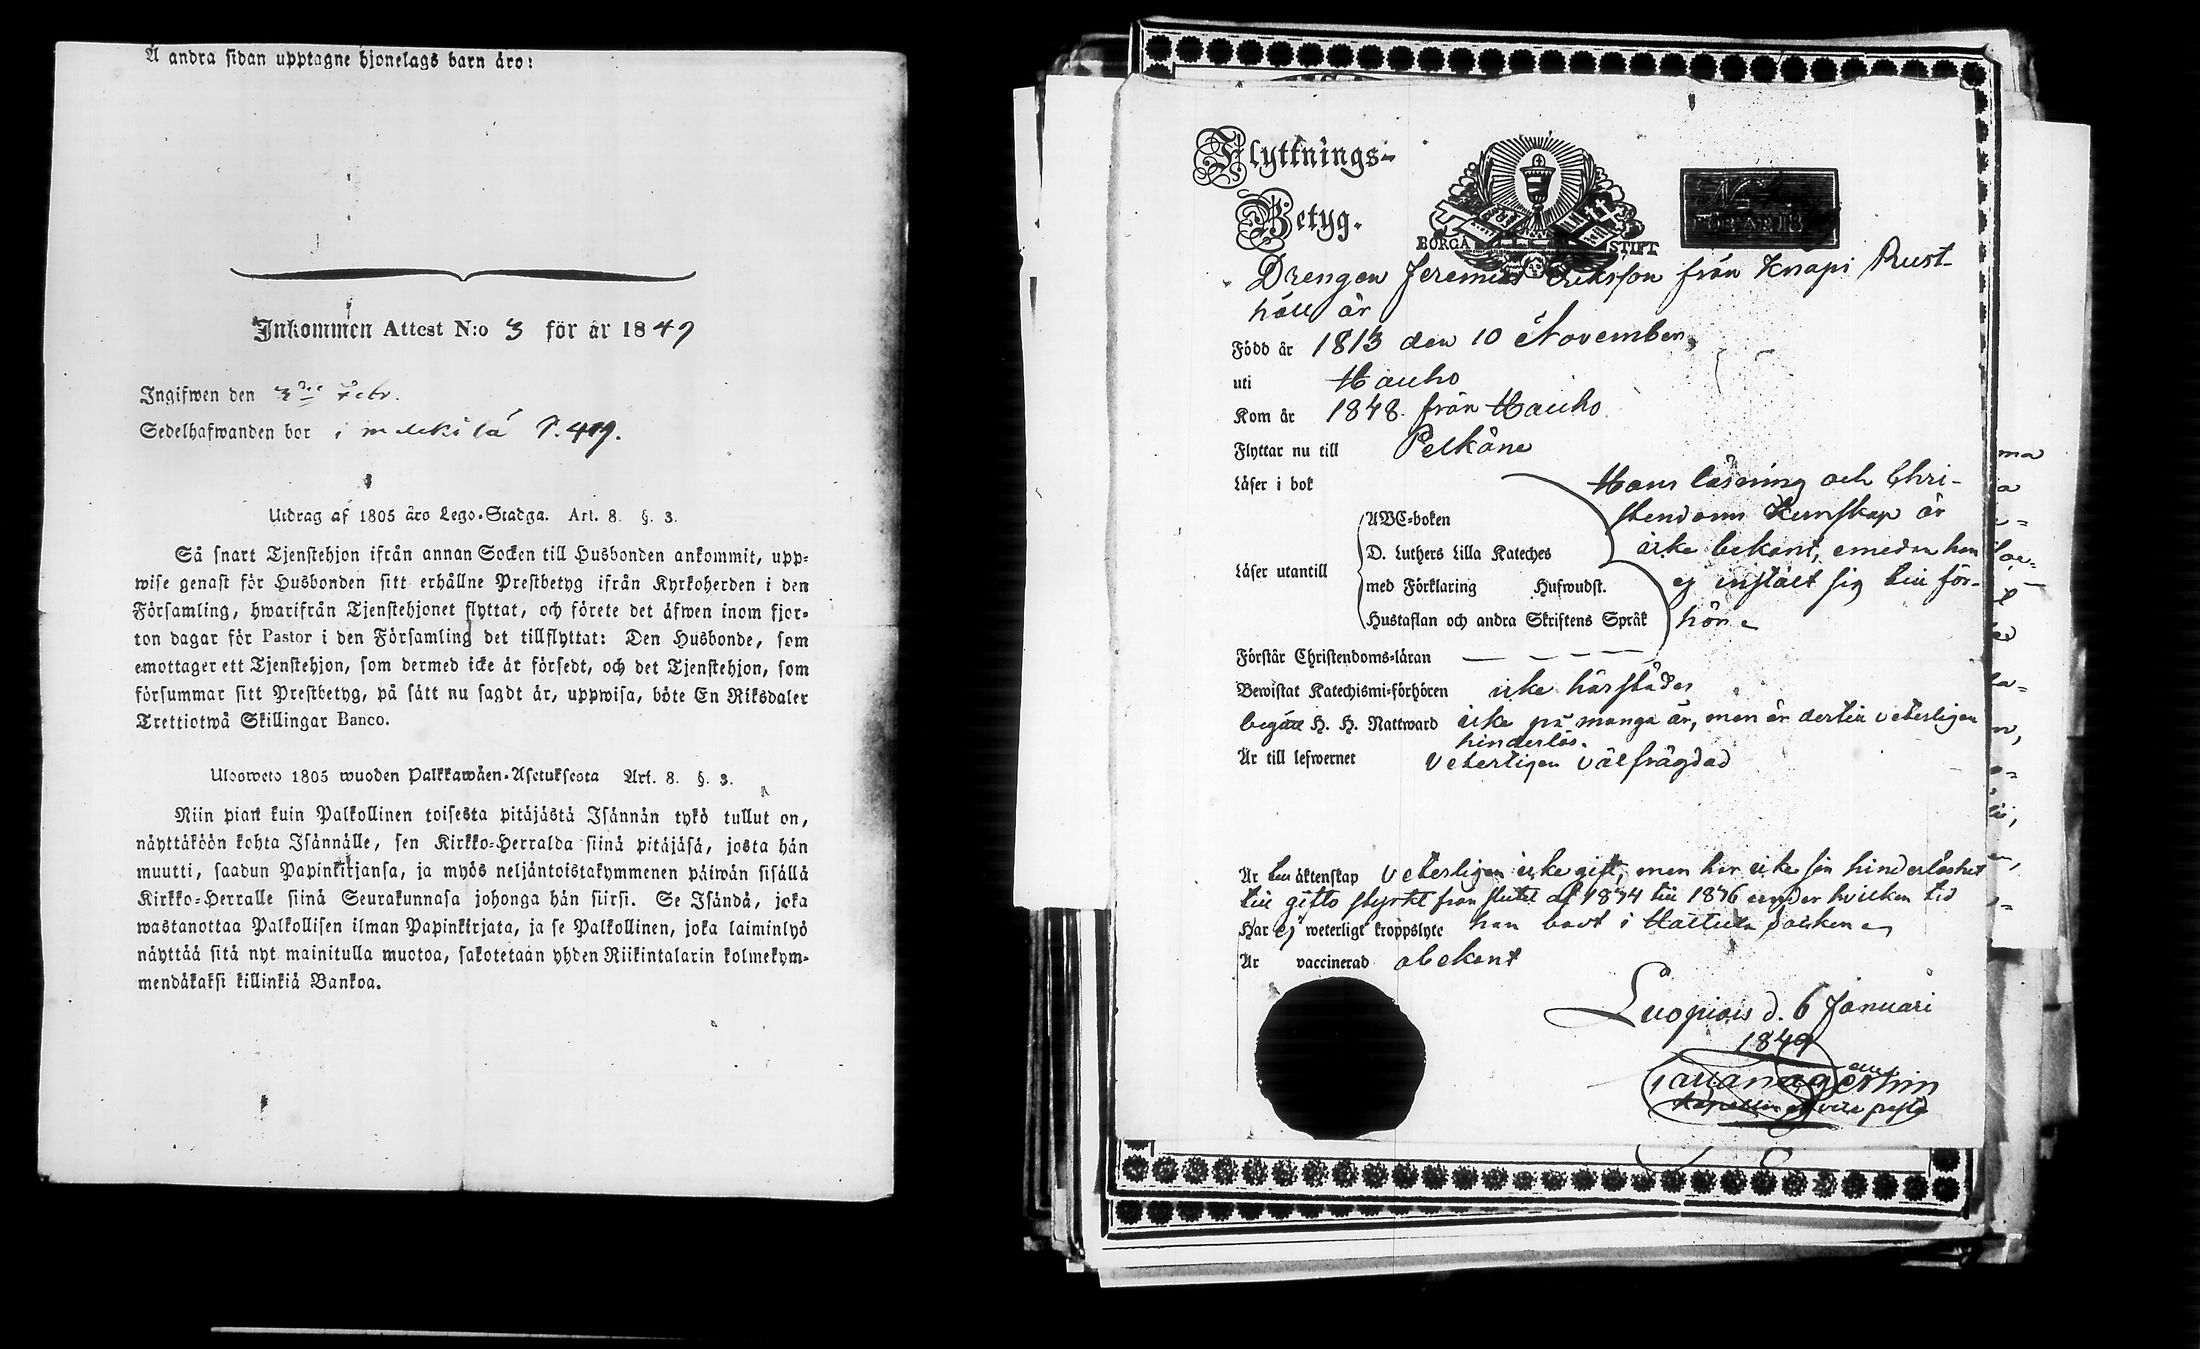 Å andra sidan upptagne hjonelags barn äro:
Inkommen Attest N:o 3 för år 1849
Ingifwen den 3 Febr.
Sedelhafwanden bor i
Utdrag af 1805 års Lego-Stadga. Art. 8. §. 3.
Så snart Tjenstehjon ifrån annan Socken till Husbonden ankommit, upp-
wise genast för Husbonden sitt erhållne Prestbetyg ifrån Kyrkoherden i den
Församling, hwarifrån Tjenstehjonet flyttat, och förete det äfwen inom fjor-
ton dagar för Pastor i den Församling det tillflyttat: Den Husbonde, som
emottager ett Tjenstehjon, som dermed icke är försedt, och det Tjenstehjon, som
försummar sitt Prestbetyg, på sätt nu sagdt är, uppwisa, böte En Riksdaler
Trettiotwå Skillingar Banco.
Ulosweto 1805 wuoden Palkkawäen-Asetuksesta Art. 8. §. 3.
Niin pian kuin Palkollinen toisesta pitäjästä Isännän tykö tullut on,
näyttäköön kohta Isännälle, sen Kirkko-Herralda siinä pitäjäsä, josta hän
muutti, saadun Papinkirjansa, ja myös neljäntoistakymmenen päiwän sisällä
Kirkko-Herralle siinä Seurakunnasa johonga hän siirsi. Se Isändä, joka
wastanottaa Palkollisen ilman Papinkirjata, ja se Palkollinen, joka laiminlyö
näyttää sitä nyt mainitulla muotoa, sakotetaan yhden Riikintalarin kolmekym-
mendäkaksi killinkiä Bankoa.
Flyttnings-
Betyg.
BORGÅ STIFT
Drengen Jeremias Eriksson från Knapi Rust-
håll är
Född år 1813 den 10 November
uti Hauho
Kom år 1848 från Hauho
Flyttar nu till Pelkäne
Läser i bok Hans läsning och Chri-
stendoms kunskap är
icke bekant, emedan han
ej instält sig till för-
hör
Läser utantill
ABC-boken
D. Luthers Lilla Kateches
med Förklaring Hufwudst.
Hustaflan och andra Skriftens Språk
Förstår Christendoms-läran
Bewistat Katechismi-förhören icke härstädes
begått H. H. Nattward icke på många år, men är dertill veterligen
hinderlös.
Är till lefwernet veterligen välfrägdad
Är till äktenskap veterligen icke gift, men har icke sin hinderlöshet
till gifto styrkt från slutet af 1844 till 1846 under hvilken tid
Har ej weterligt kroppslyte han bodt i Hattula socken
Är vaccinerad obekant
Luopiois d. 6 Januari
1849